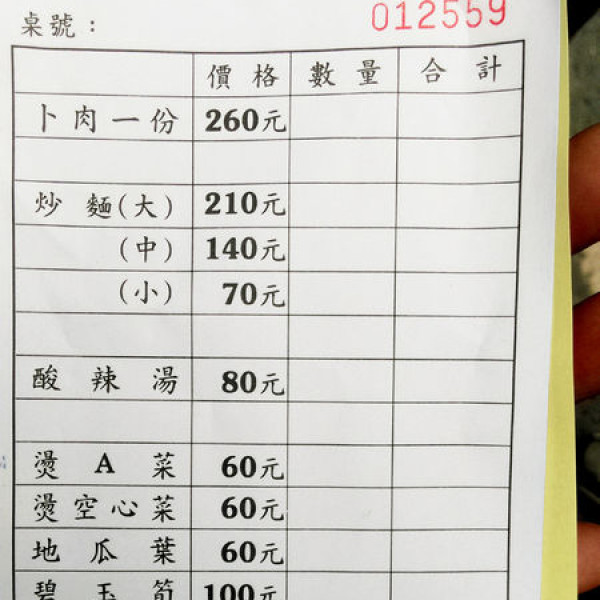 桌號：
012559
價格 數量 合計
卜肉一份 260元
炒麵(大) 210元
(中) 140元
(小) 70元
酸辣湯 80元
燙A菜 60元
燙空心菜 60元
地瓜葉 60元
碧玉筍 100元